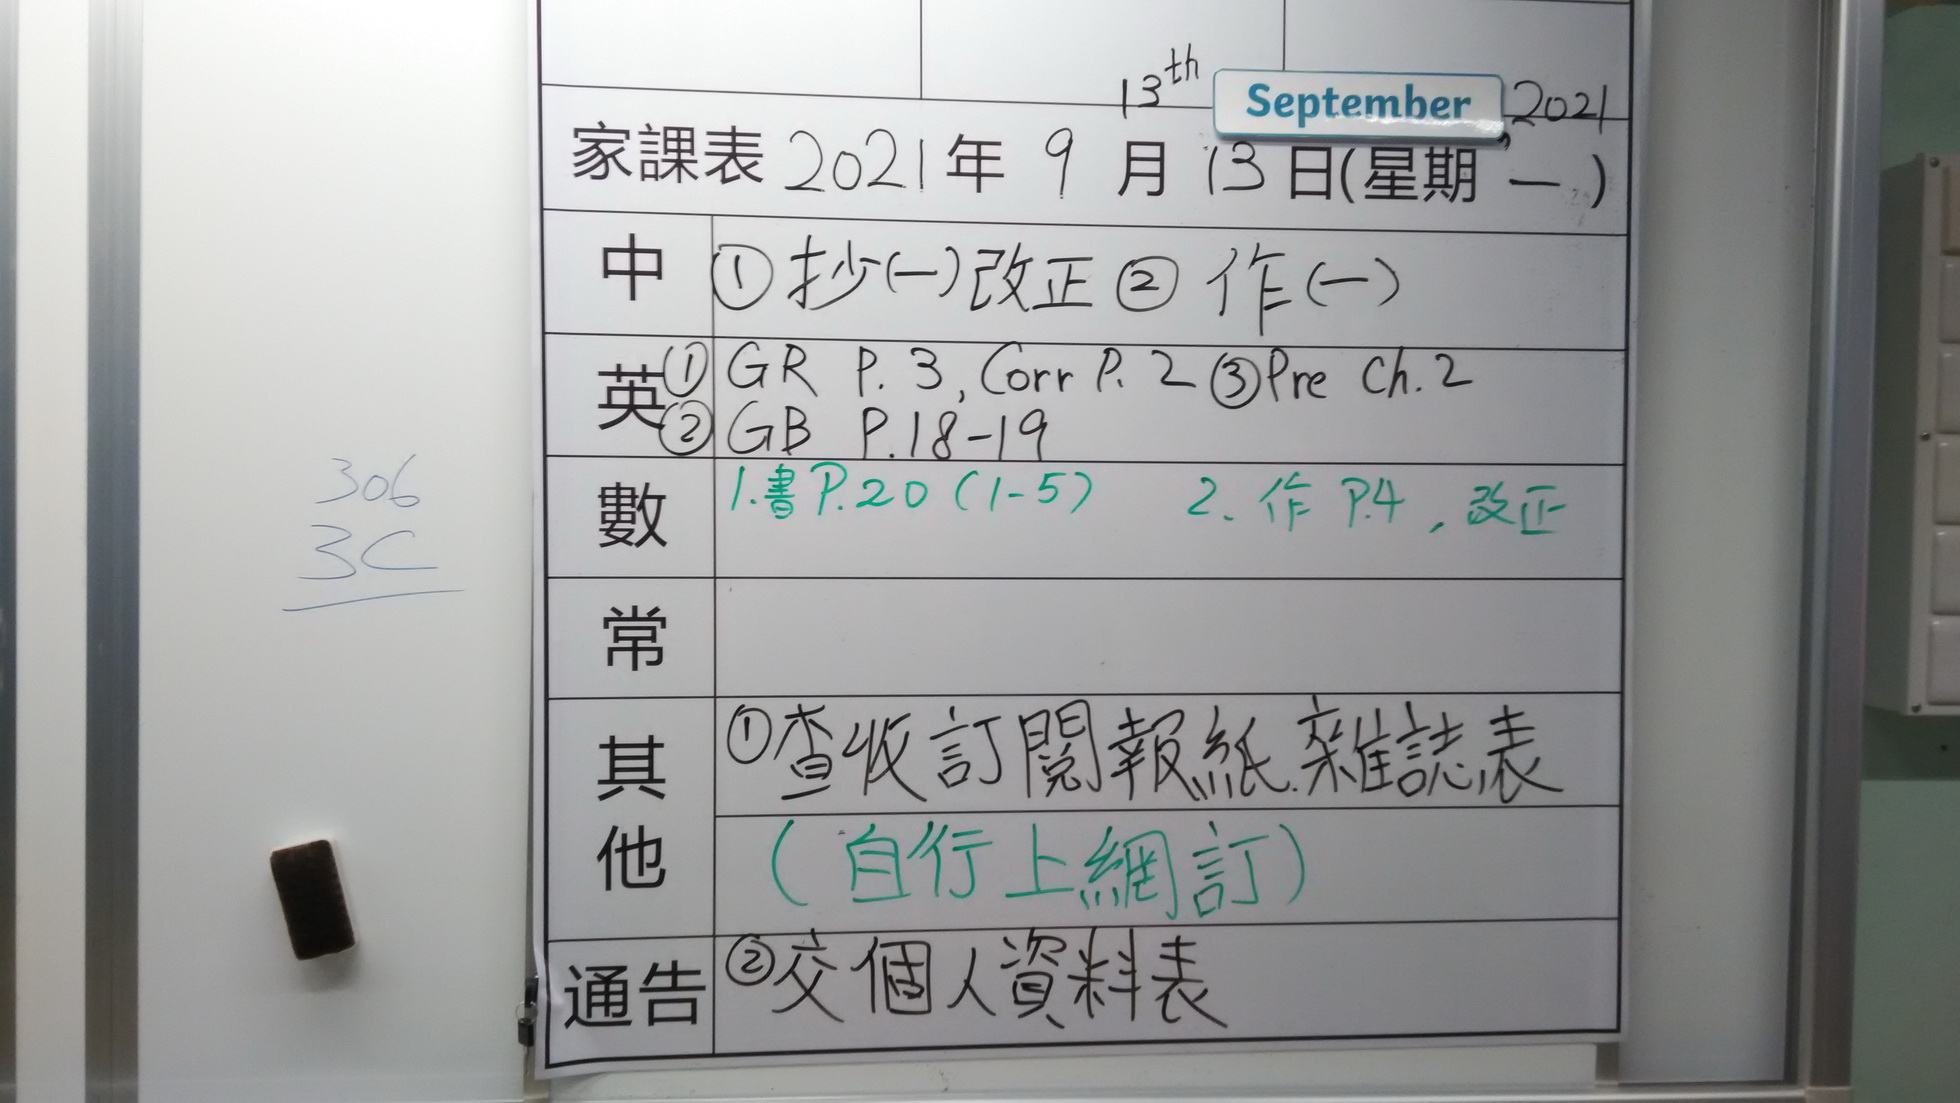 13th September, 2021
家課表 2021年 9 月 13 日(星期 一 )
中 ① 抄(一)改正 ② 作(一)
英 ① GR P. 3, Corr P. 2 ③ Pre Ch. 2
② GB P.18-19
數 1.書P.20 (1-5) 2. 作 P.4 , 改正
常
其他 ①查收訂閱報紙.雜誌表
(自行上網訂)
通告 ②交個人資料表
306
3C